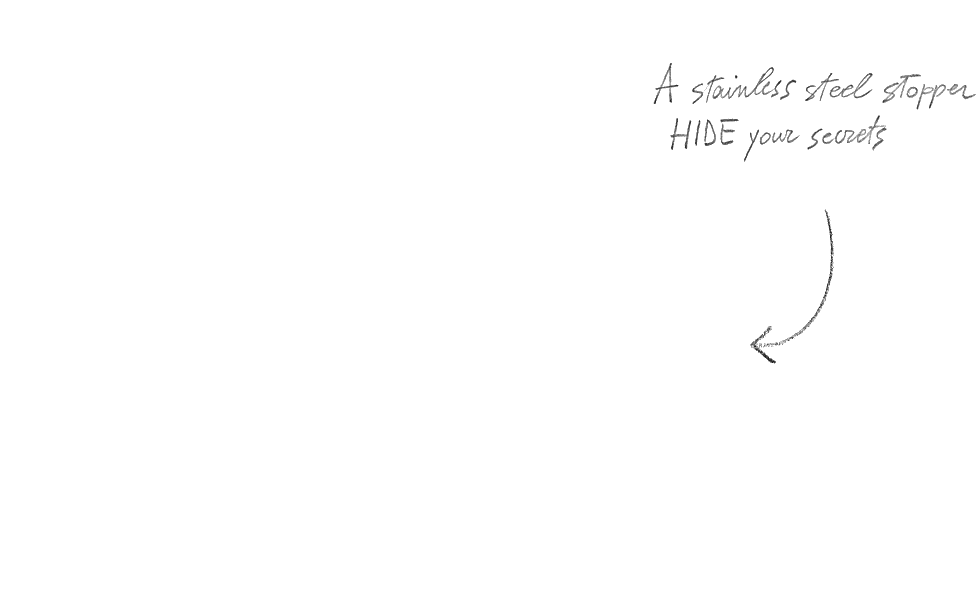 A stainless steel stopper
HIDE your secrets